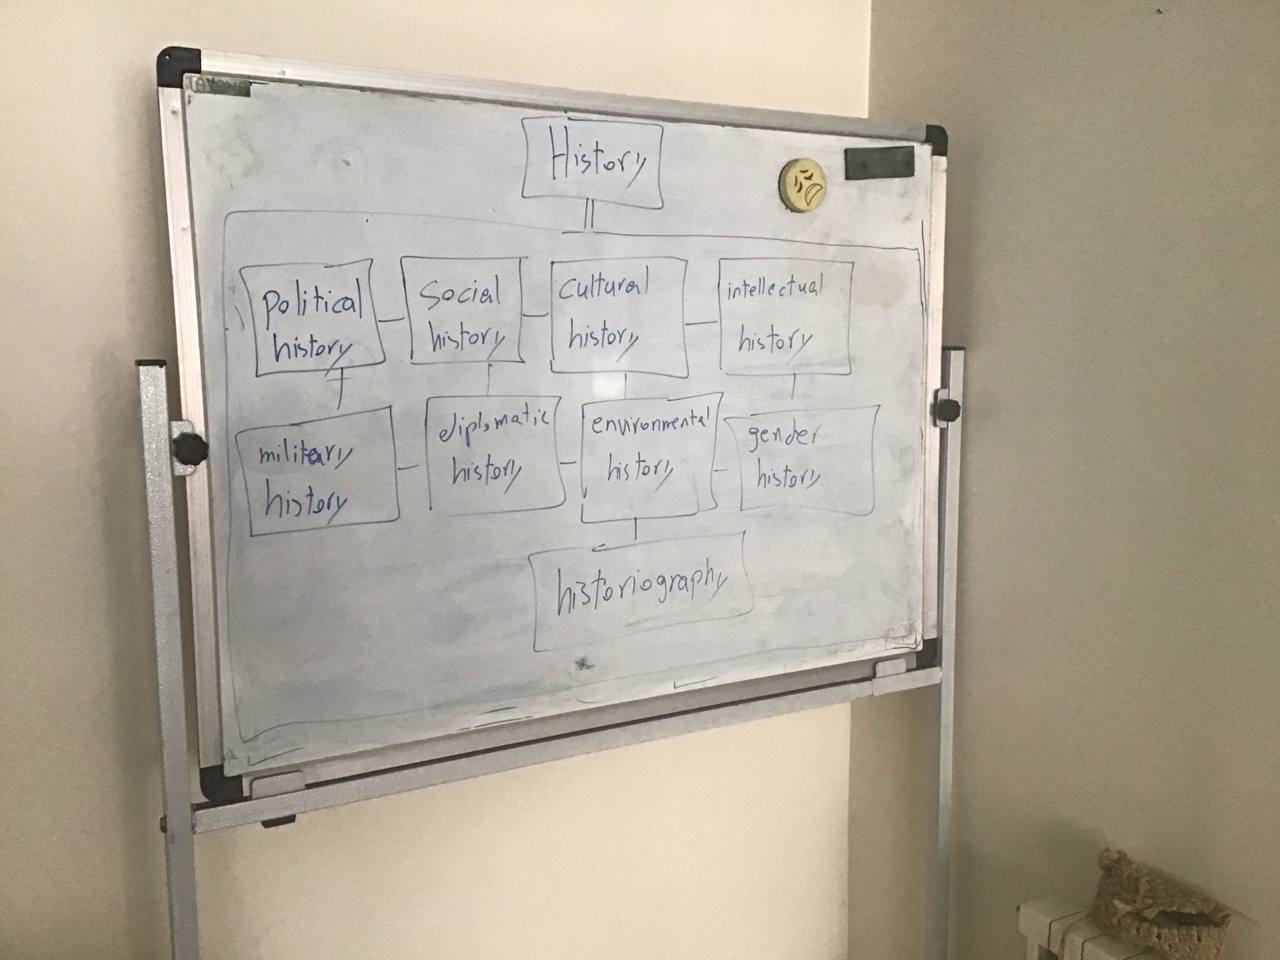 History
political
history
social
history
cultural
history
intellectual
history
military
history
diplomatic
history
environmental
history
gender
history
historiography